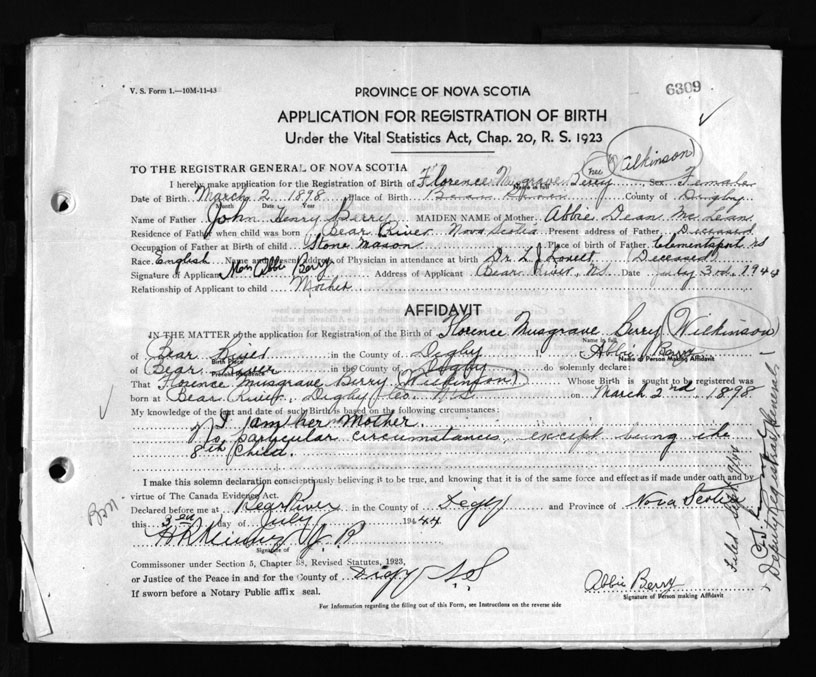 V. S. Form 1.—10M-11-43
6309
PROVINCE OF NOVA SCOTIA
APPLICATION FOR REGISTRATION OF BIRTH
Under the Vital Statistics Act, Chap. 20, R. S. 1923
TO THE REGISTRAR GENERAL OF NOVA SCOTIA
I hereby make application for the Registration of Birth of Florence Musgrave Berry (nee) (Wilkinson) Sex Female
Name in full
Date of Birth March 2 1898 Place of Birth County of Digby
Month Date Year
Name of Father John Henry Berry MAIDEN NAME of Mother Abbie Dean McLean
Residence of Father when child was born Bear River Nova Scotia Present address of Father Deceased
Occupation of Father at Birth of child Stone Mason Place of birth of Father Clementsport NS
Race English Name and present Address of Physician in attendance at birth Dr. L J Lovett (Deceased)
Signature of Applicant Mrs Abbie Berry Address of Applicant Bear River, N.S. Date July 3rd, 1944
Relationship of Applicant to child Mother
AFFIDAVIT
IN THE MATTER of the application for Registration of the Birth of Florence Musgrave Berry (Wilkinson)
Name in full
of Bear River in the County of Digby Abbie Berry
Birth Place Name of Person Making Affidavit
of Bear River in the County of Digby do solemnly declare:
That Florence Musgrave Berry (Wilkinson) Whose Birth is sought to be registered was
born at Bear River, Digby Co. N.S. on March 2nd, 1898
My knowledge of the fact and date of such Birth is based on the following circumstances:
I am her Mother.
No particular circumstances, except being the
8th Child.
I make this solemn declaration conscientiously believing it to be true, and knowing that it is of the same force and effect as if made under oath and by
virtue of The Canada Evidence Act.
Declared before me at Bear River in the County of Digby and Province of Nova Scotia
this 3rd day of July 1944
J. P.
Signature of
Commissioner under Section 5, Chapter 38, Revised Statutes, 1923,
or Justice of the Peace in and for the County of Digby N.S.
If sworn before a Notary Public affix seal.
Abbie Berry
Signature of Person making Affidavit
For Information regarding the filling out of this Form, see Instructions on the reverse side
Deputy Registrar General